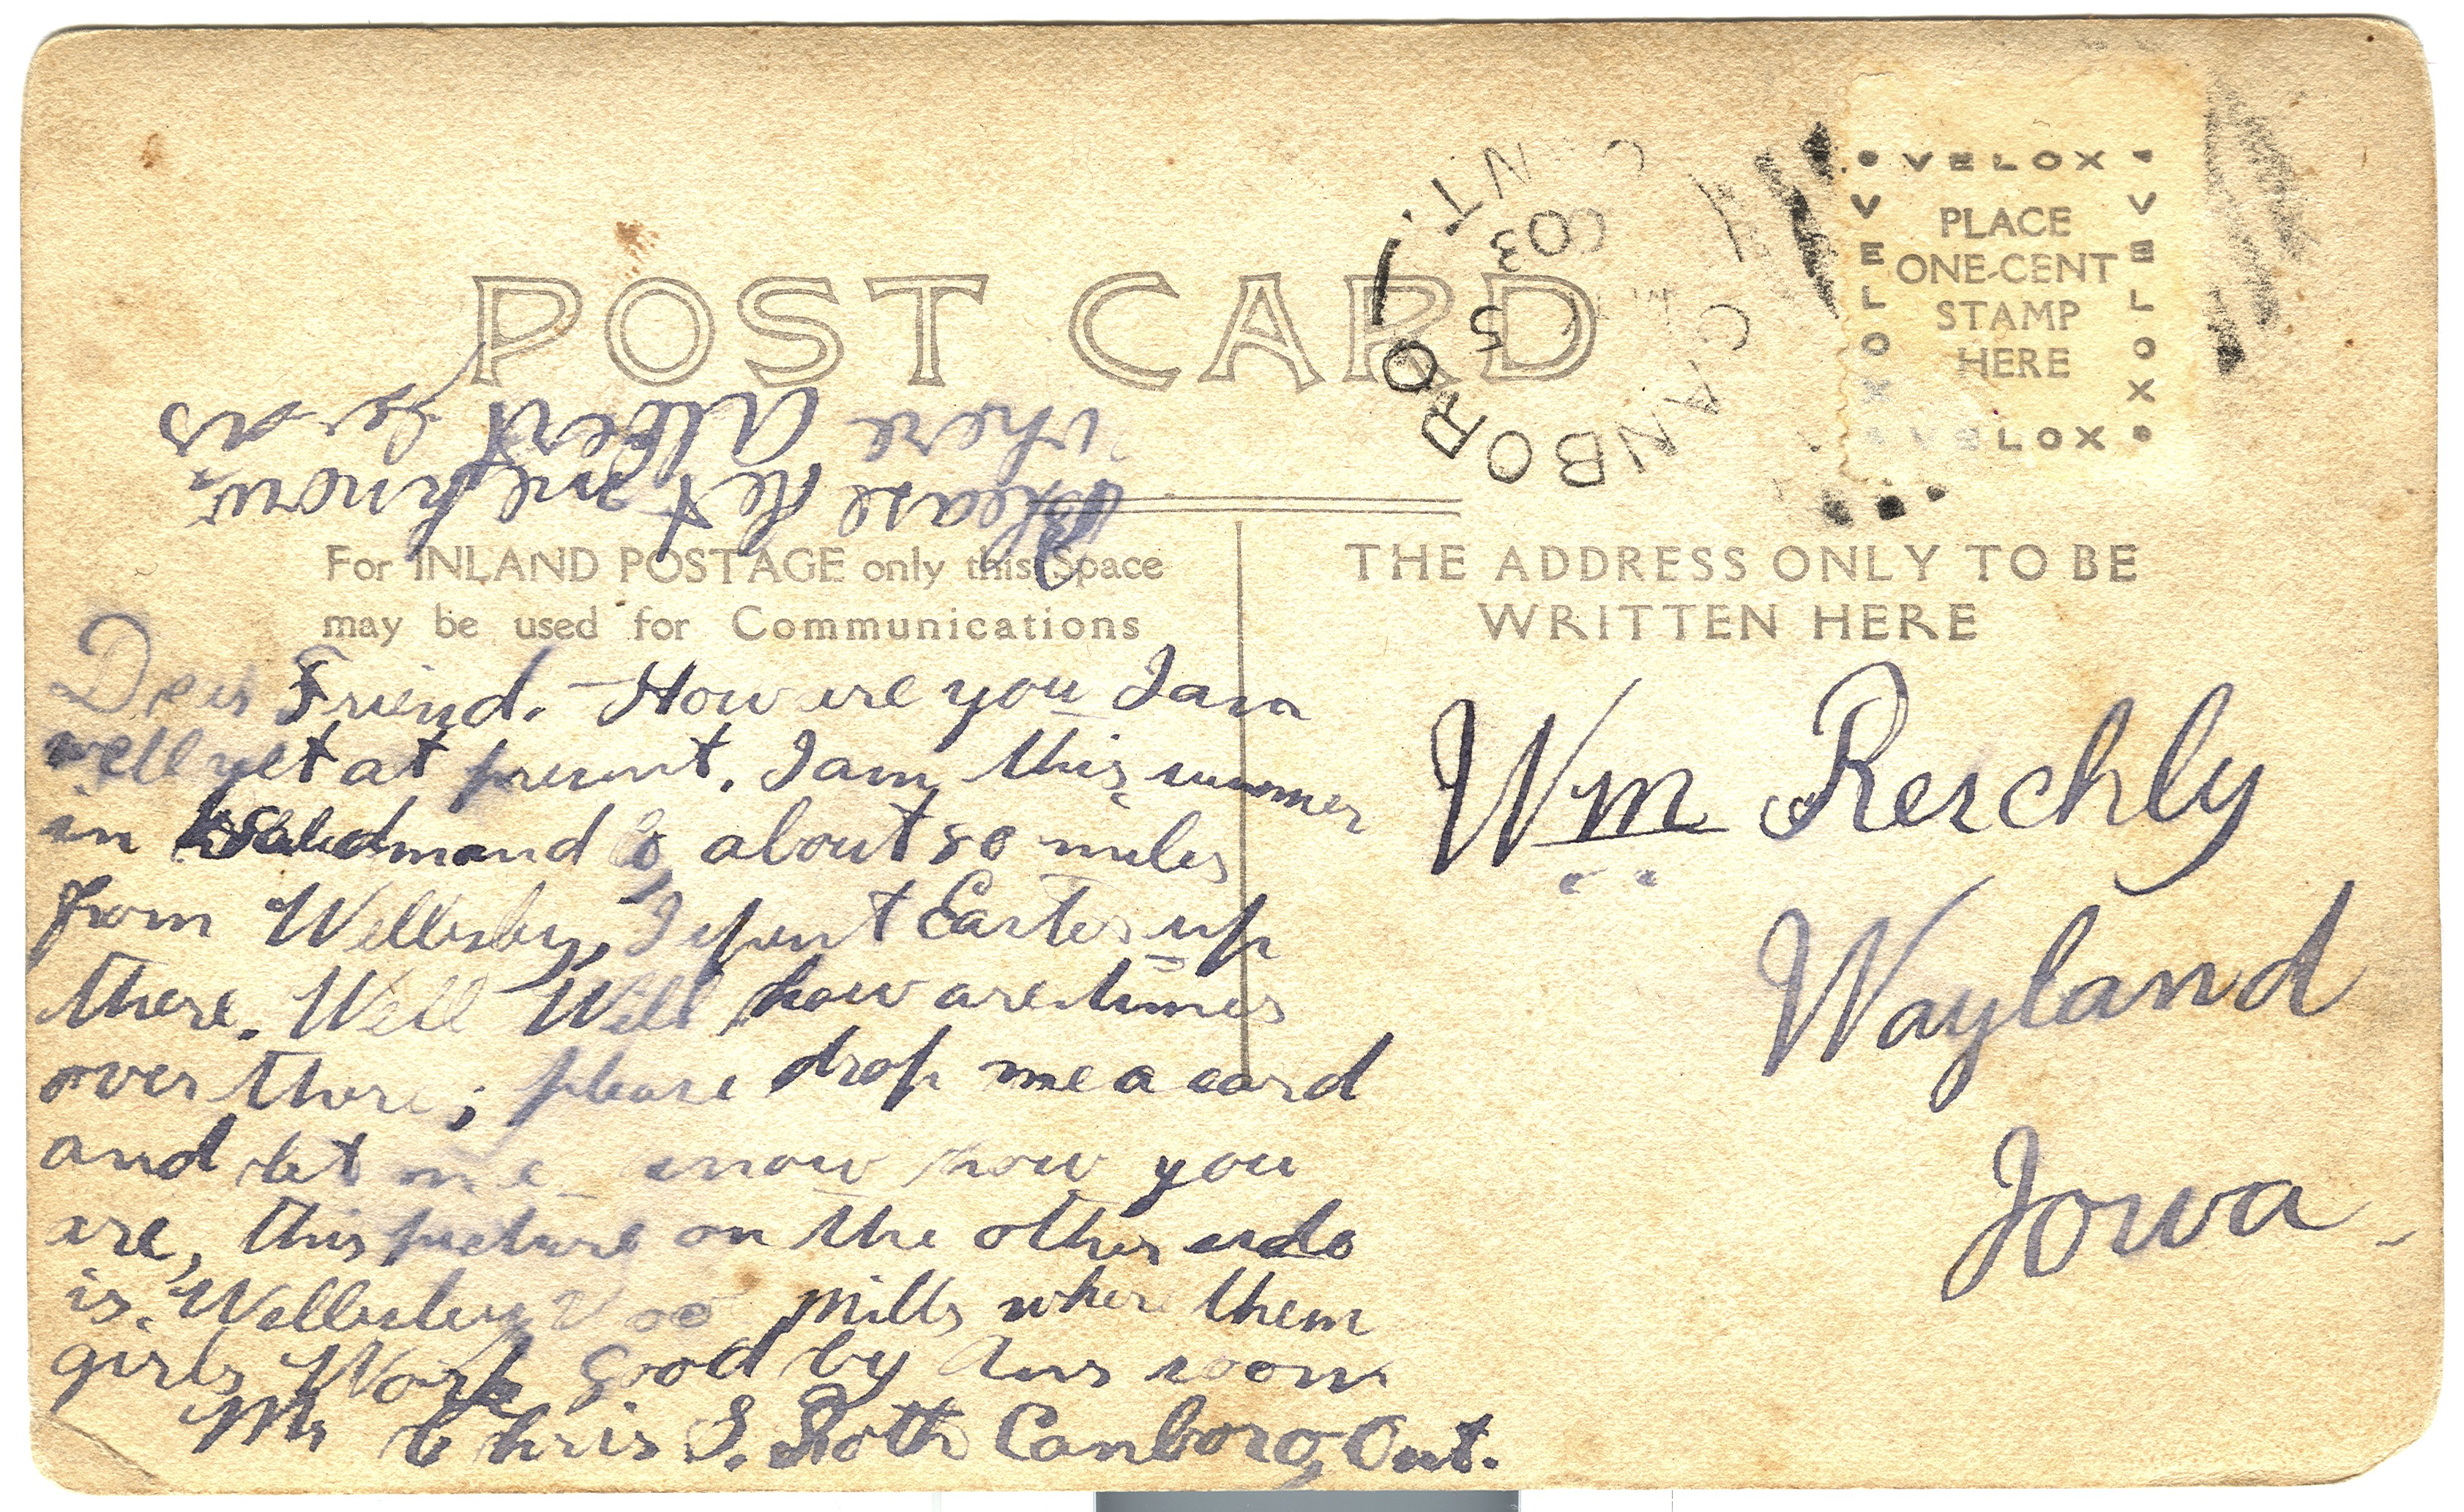 POST CARD
CANBORO
ONT.
VELOX
VELOX
VELOX
VELOX
PLACE
ONE-CENT
STAMP
HERE
Please let me know
where Albert is
For INLAND POSTAGE only this Space
may be used for Communications
THE ADDRESS ONLY TO BE
WRITTEN HERE
Dear Friend. - How are you I am
well yet at present. I am this summer
in about 80 miles
from Wellesley, I spent Easter up
there. Well Will how are times
over there; please drop me a card
and let me know how you
are, this picture on the other side
is. Wellesley mills where them
girls Work Good by Ans soon
Mr Chris S. Roth Canboro, Ont.
Wm Reschly
Wayland
Iowa -